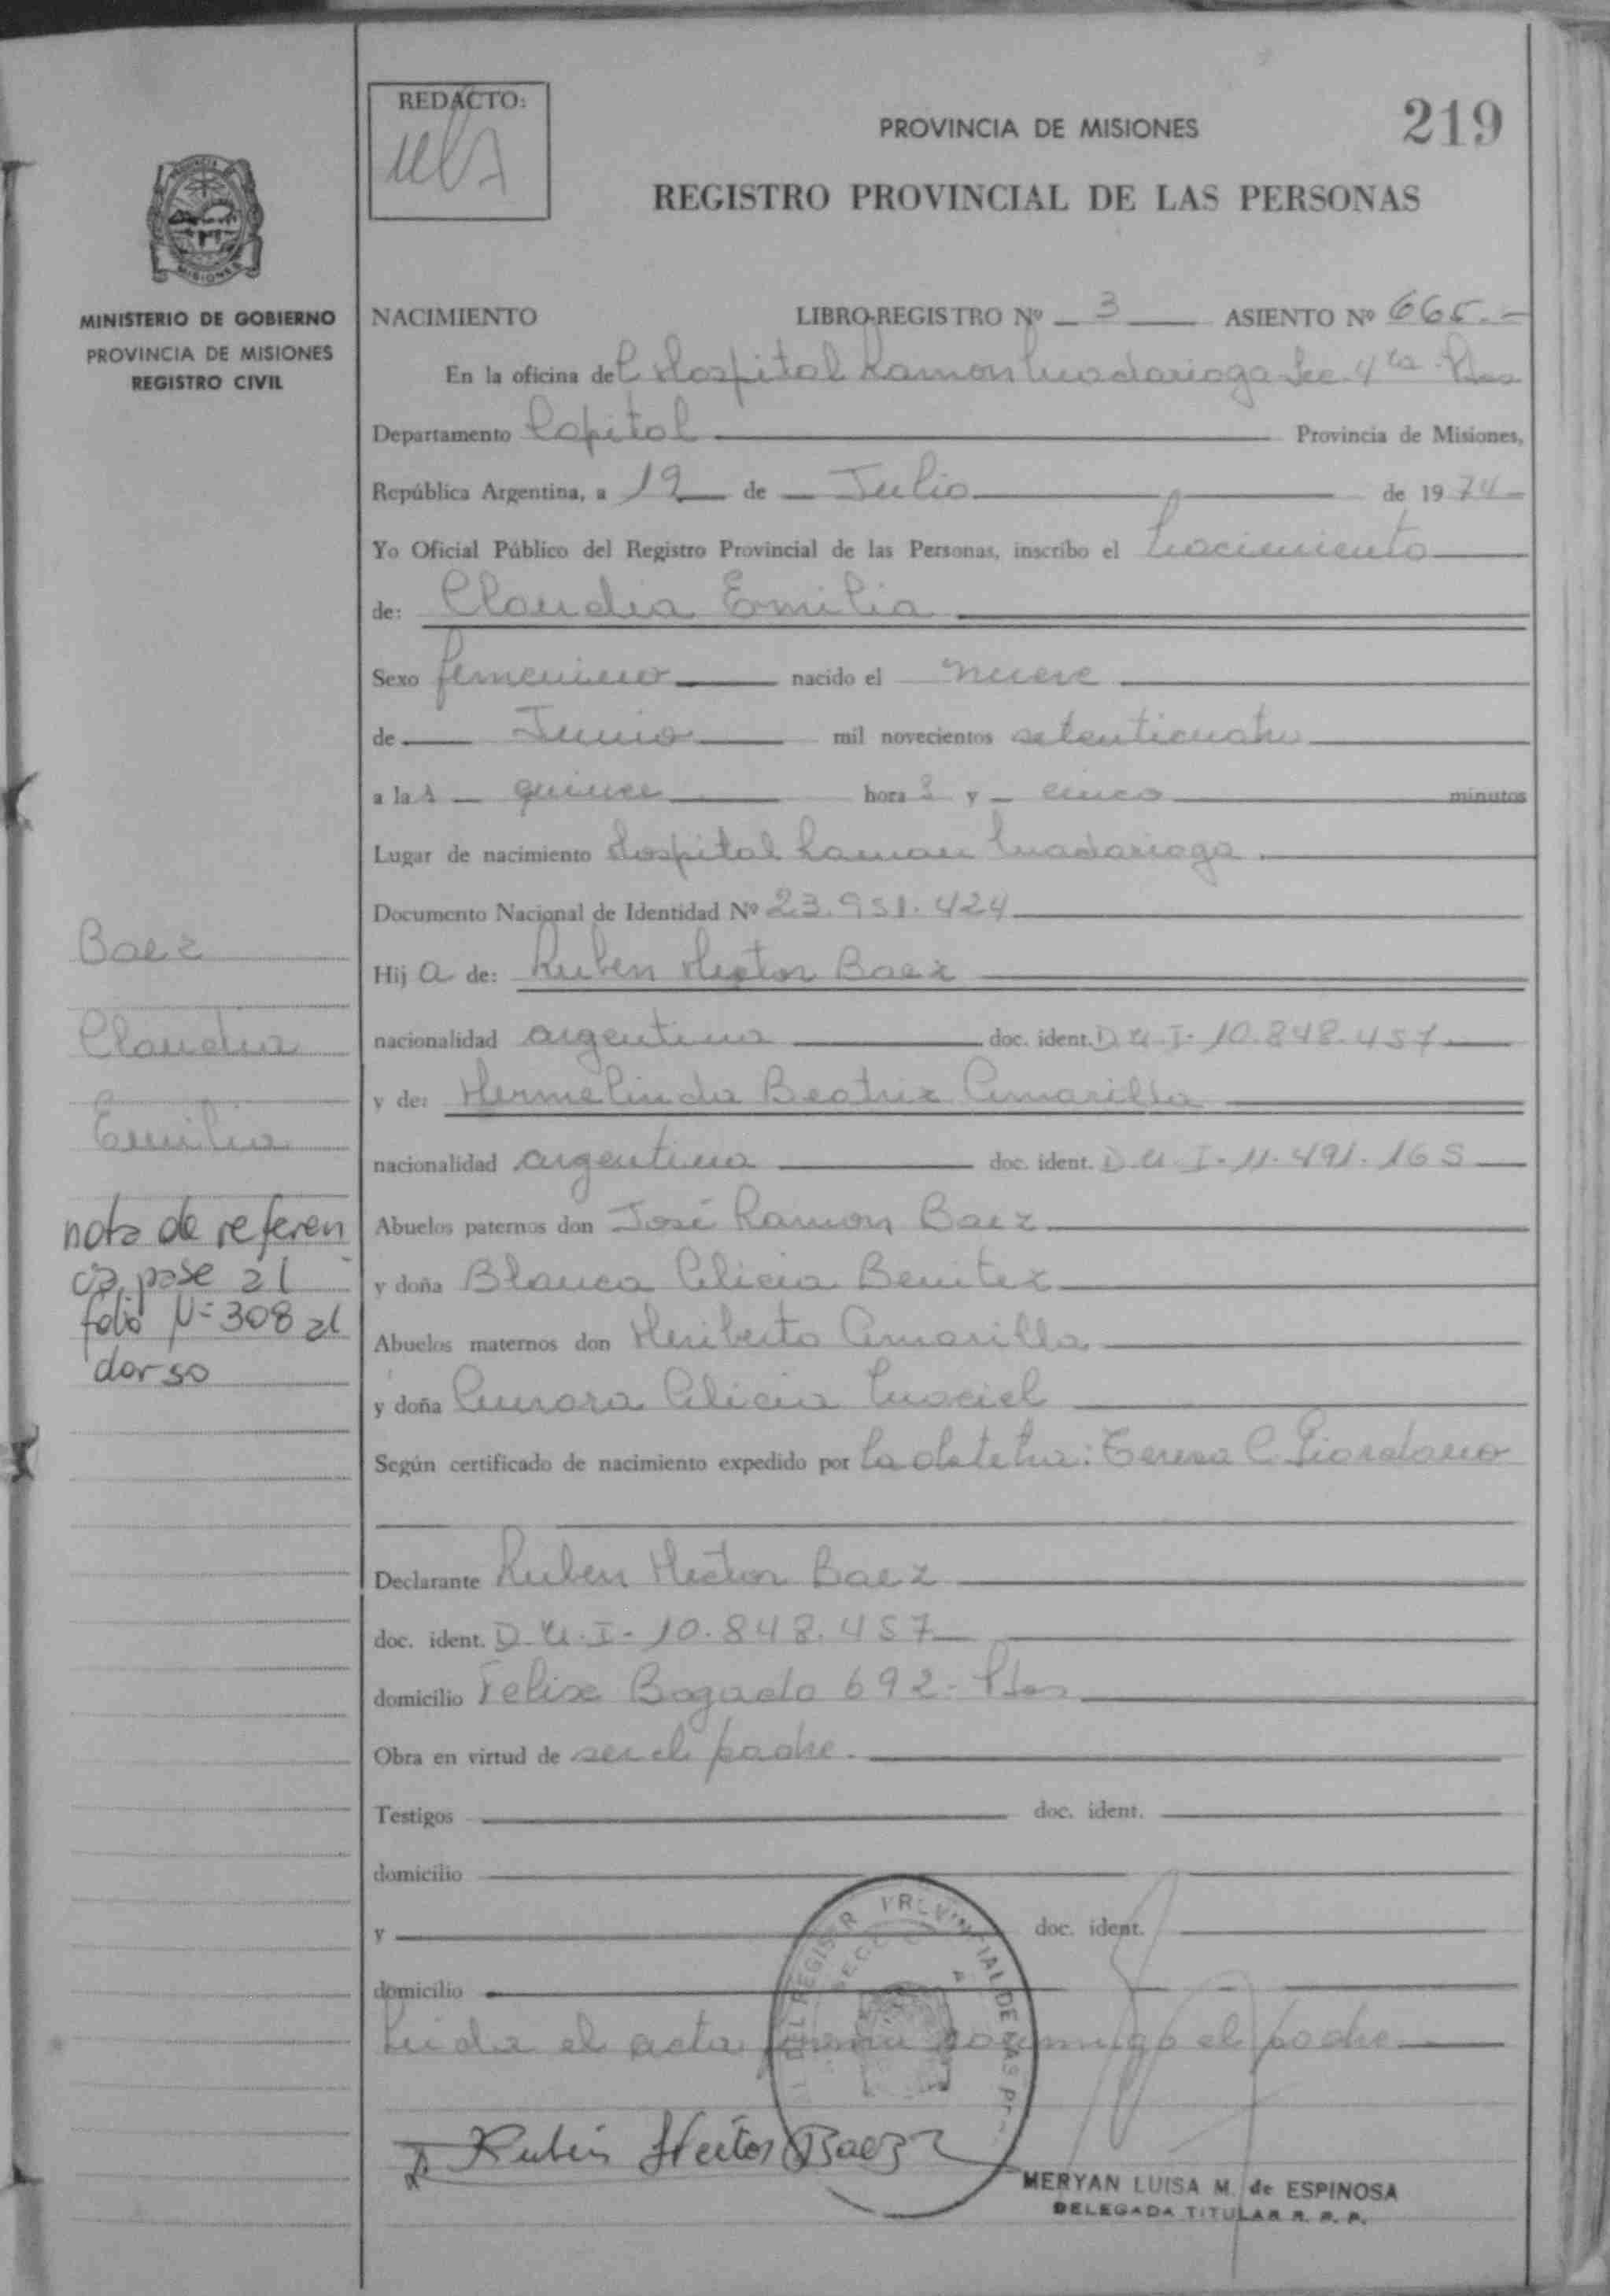 REDACTO:
PROVINCIA DE MISIONES
219
REGISTRO PROVINCIAL DE LAS PERSONAS
MISIONES
MINISTERIO DE GOBIERNO
PROVINCIA DE MISIONES
REGISTRO CIVIL
NACIMIENTO LIBRO-REGISTRO Nº 3 ASIENTO Nº 665.-
En la oficina del Hospital Ramon Madariaga Sec. 4ta Pdas
Departamento Capital Provincia de Misiones,
República Argentina, a 19 de Julio de 1974
Yo Oficial Público del Registro Provincial de las Personas, inscribo el nacimiento
de: Claudia Emilia
Sexo femenino nacido el nueve
de Junio mil novecientos setenticuatro
a las quince horas y cinco minutos
Lugar de nacimiento Hospital Ramon Madariaga.
Documento Nacional de Identidad Nº 23.951.424
Baez
Hija de: Ruben Hector Baez
Claudia
nacionalidad argentina doc. ident. D.U.I- 10.848.457
y de: Hermelinda Beatriz Amarilla
Emilia
nacionalidad argentina doc. ident. D.U.I- 11.491.165
nota de referen
cia, pase al
folio Nº 308 al
dorso
Abuelos paternos don José Ramon Baez
y doña Blanca Alicia Benitez
Abuelos maternos don Heriberto Amarilla
y doña Aurora Alicia Maciel
Según certificado de nacimiento expedido por La obstetra: Teresa C. Giordano
Declarante Ruben Hector Baez
doc. ident. D.U.I- 10.848.457
domicilio Felix Bogado 692- Pdas
Obra en virtud de ser el padre.
Testigos doc. ident.
domicilio
y doc. ident.
domicilio
Leida el acta firma conmigo el padre
Rubén Hector Baez
MERYAN LUISA M. de ESPINOSA
DELEGADA TITULAR R. P. P.